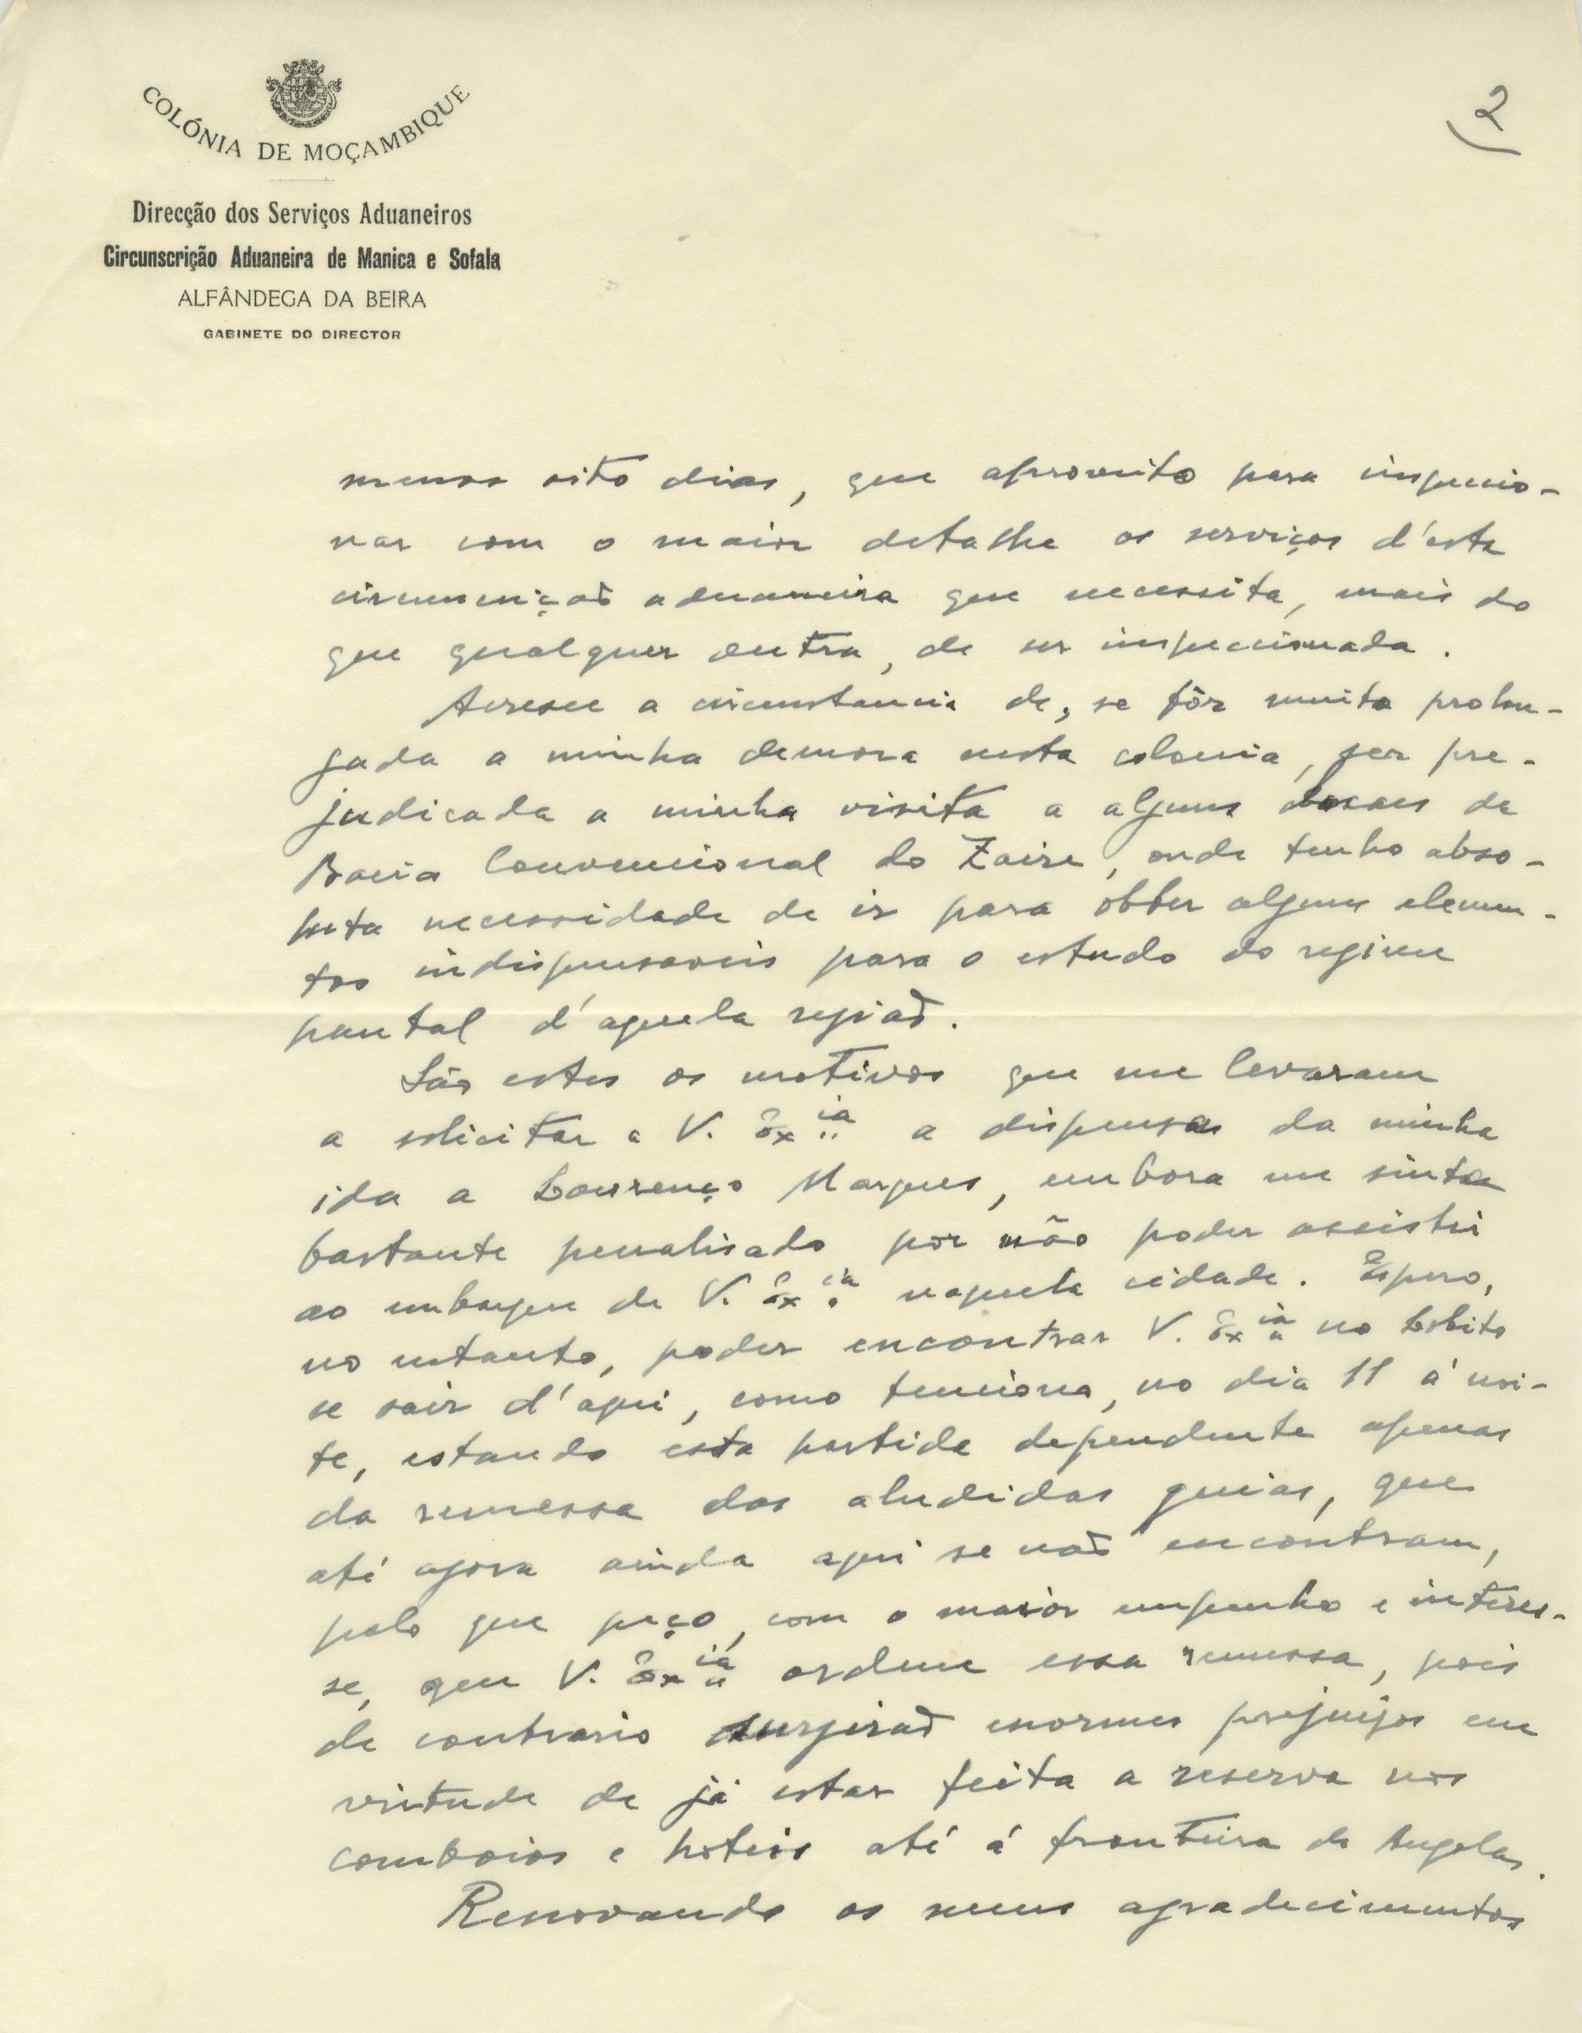 2
COLÓNIA DE MOÇAMBIQUE
Direcção dos Serviços Aduaneiros
Circunscrição Aduaneira de Manica e Sofala
ALFÂNDEGA DA BEIRA
GABINETE DO DIRECTOR
menos oito dias, que aproveito para inspecio-
nar com o maior detalhe os serviços d'esta
circunscrição aduaneira que necessita, mais do
que qualquer outra, de ser inspeccionada.
Acresce a circunstancia de, se fôr muito prolon-
gada a minha demora nesta colonia, ser pre-
judicada a minha visita a alguns locaes da
Bacia Convencional do Zaire, onde tenho abso-
luta necessidade de ir para obter alguns elemen-
tos indispensaveis para o estudo do regimen
pautal d'aquela região.
São estes os motivos que me levaram
a solicitar a V. Exia a dispensa da minha
ida a Lourenço Marques, embora me sinta
bastante penalisado por não poder assistir
ao embarque de V. Exia naquela cidade. Espero,
no entanto, poder encontrar V. Exia no Lobito
se sair d'aqui, como tenciono, no dia 11 á noi-
te, estando esta partida dependente apenas
da remessa das aludidas guias, que
até agora ainda aqui se não encontram,
pelo que peço, com o maior empenho e interes-
se, que V. Exia ordene essa remessa, pois
de contrario surgirão enormes prejuizos em
virtude de já estar feita a reserva nos
comboios e hoteis até á fronteira de Angola.
Renovando os meus agradecimentos